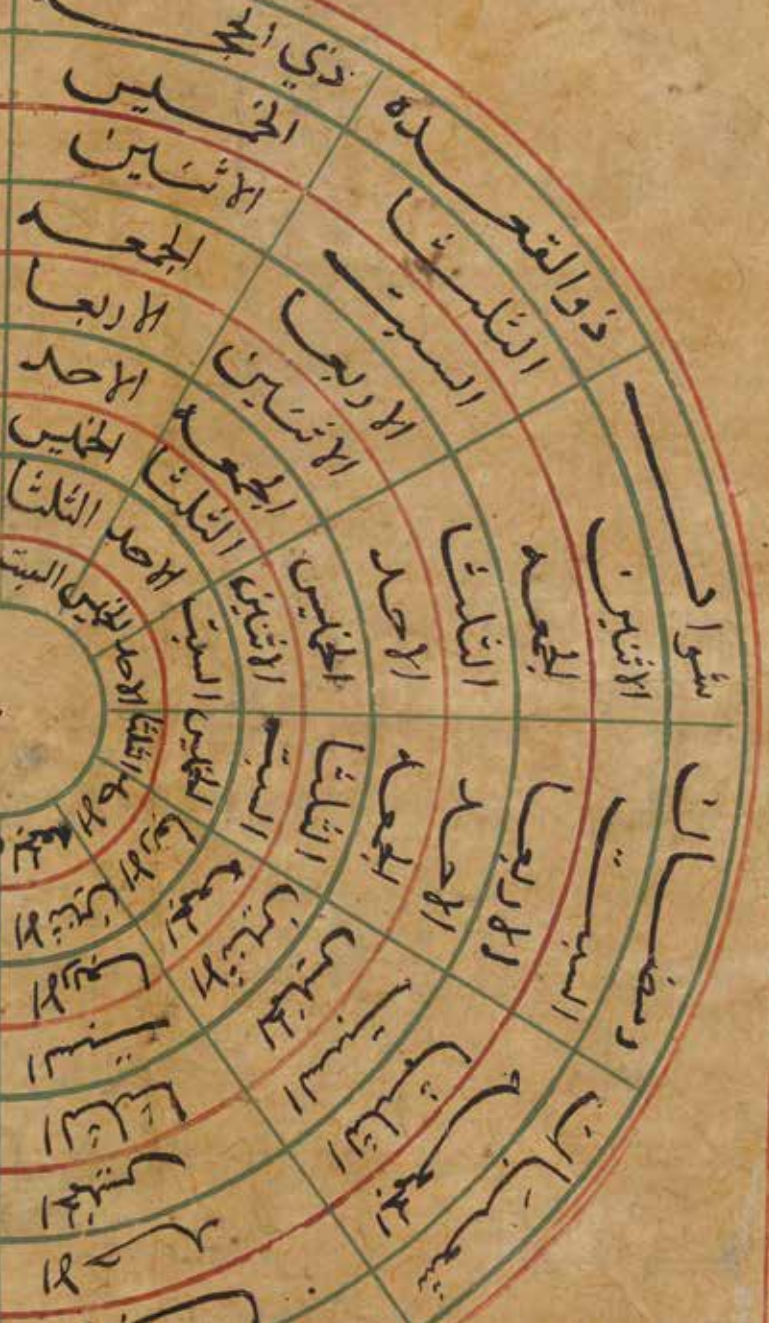 ذي الحجـ
الخميس
الاثنين
الجمعه
الاربعا
الاحد
الخميس
الثلثا
السبت
ذوالقعده
الثلثا
السبت
الاربعا
الاثنين
الجمعه
الثلثا
الاحد
الخميس
شوال
الاثنين
الجمعه
الثلثا
الاحد
الخميس
الاثنين
السبت
الاحد
رمضان
السبت
الاربعا
الاحد
الجمعه
الثلثا
السبت
الخميس
الثلثا
شعبان
الجمعه
الثلثا
السبت
الخميس
الاثنين
الجمعه
الاربعا
الاحد
الاحد
الخميس
الثلثا
السبت
الاربعا
الاثنين
الجمعه